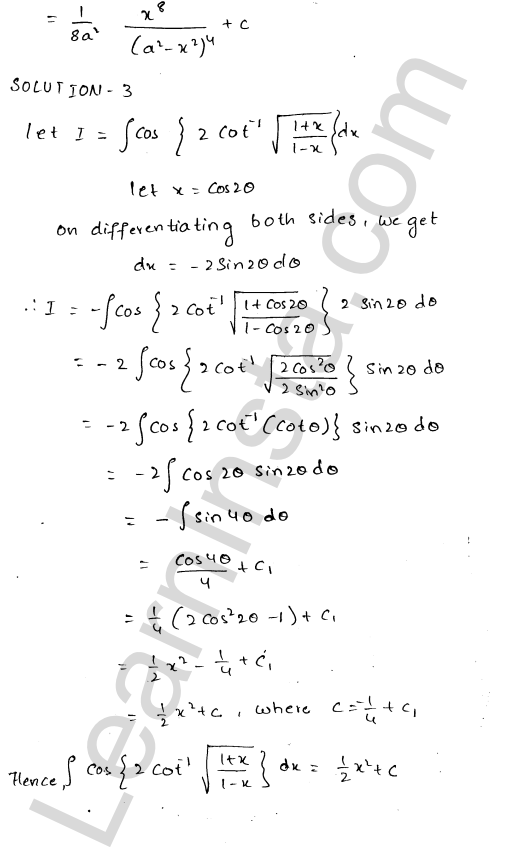 = 1/8a² x⁸/(a²-x²)⁴ + c
SOLUTION-3
let I = ∫cos { 2 cot⁻¹ √(1+x/1-x) } dx
let x = cos2θ
on differentiating both sides, we get
dx = -2sin2θdθ
∴ I = -∫cos { 2 cot⁻¹ √(1+cos2θ/1-cos2θ) } 2 sin2θ dθ
= -2 ∫cos { 2 cot⁻¹ √(2cos²θ/2sin²θ) } sin2θ dθ
= -2 ∫cos {2 cot⁻¹(cotθ)} sin2θ dθ
= -2∫ cos 2θ sin2θ dθ
= -∫ sin 4θ dθ
= cos4θ/4 + C₁
= 1/4 (2 cos²2θ -1) + C₁
= 1/2 x² - 1/4 + C₁
= 1/2 x² + c , where c = -1/4 + C₁
Hence, ∫ cos { 2 cot⁻¹ √(1+x/1-x) } dx = 1/2 x² + c
LearnInsta.com